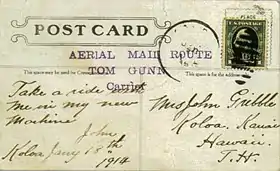 PLACE
U.S. POSTAGE
POST CARD
AERIAL MAIL ROUTE
TOM GUNN
Carrier
This space may be used for
This space is for the address
Take a ride with
me in my new
Machine
John
Koloa Jany 18th
1914
Mrs John Gribble
Koloa, Kauai
Hawaii.
T.H